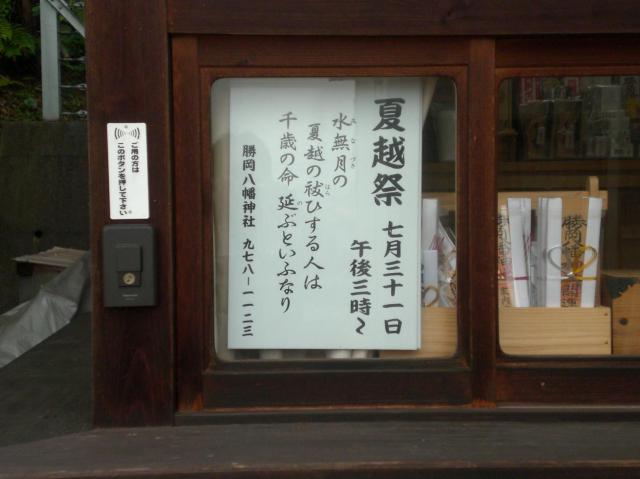 夏越祭 七月三十一日
午後三時〜
水無月の
みなづき
夏越の祓ひする人は
はら
千歳の命 延ぶといふなり
の
勝岡八幡神社 九七八ー二一二三
ご用の方は
このボタンを押して下さい。
勝岡八幡